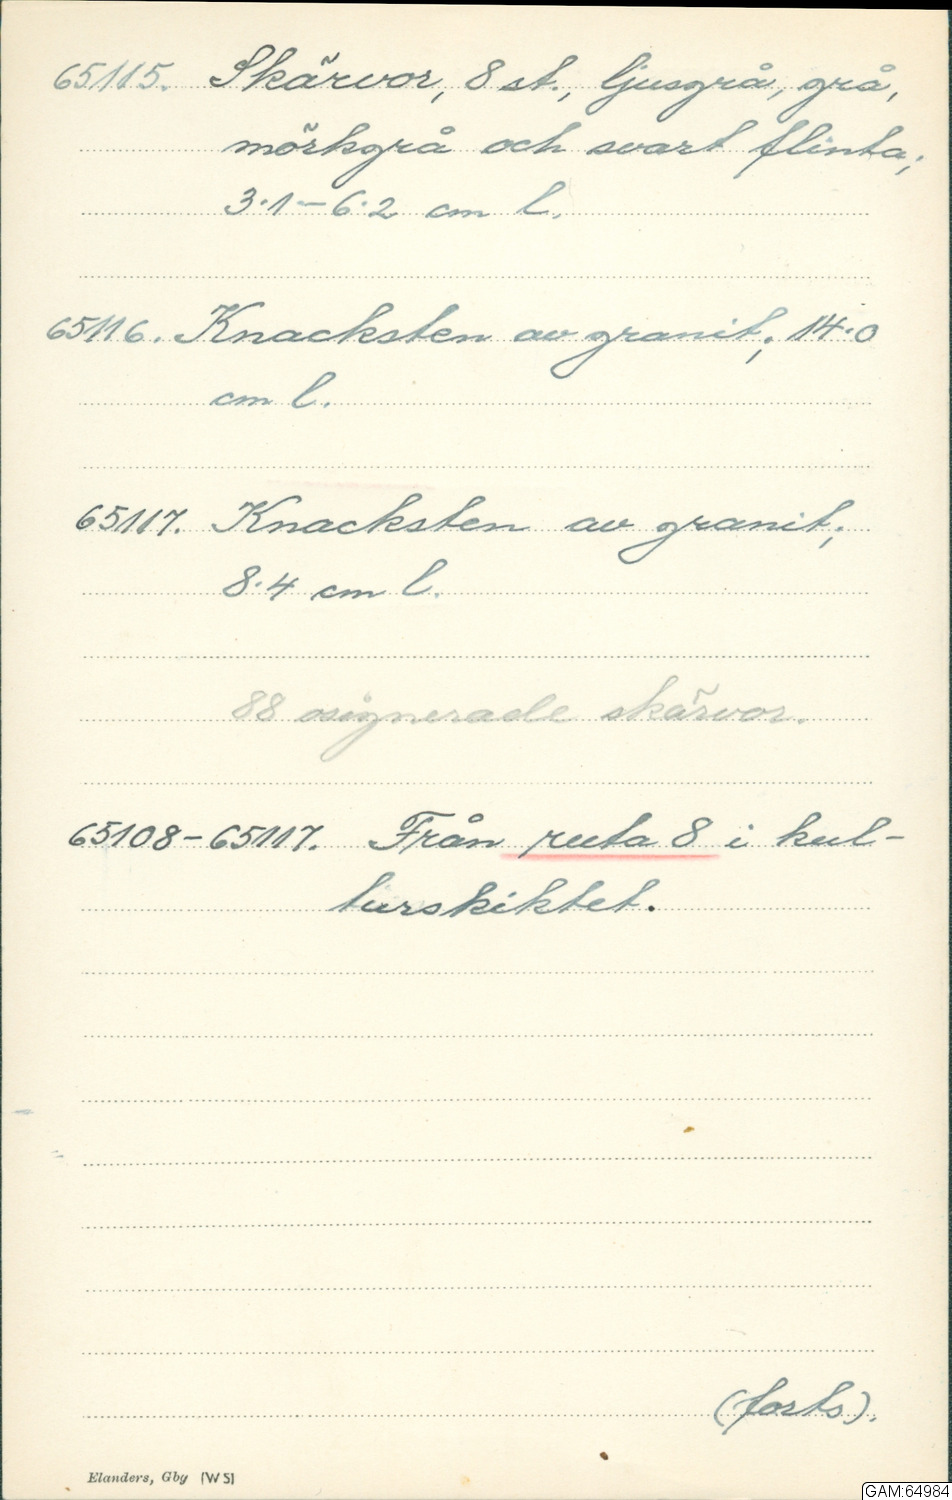 65115. Skärvor, 8 st., ljusgrå, grå,
mörkgrå och svart flinta;
3·1–6·2 cm l.
65116. Knacksten av granit; 14·0
cm l.
65117. Knacksten av granit;
8·4 cm l.
88 osignerade skärvor.
65108–65117. Från ruta 8 i kul-
turskiktet.
(forts).
Elanders, Gby [WS]
GAM:64984